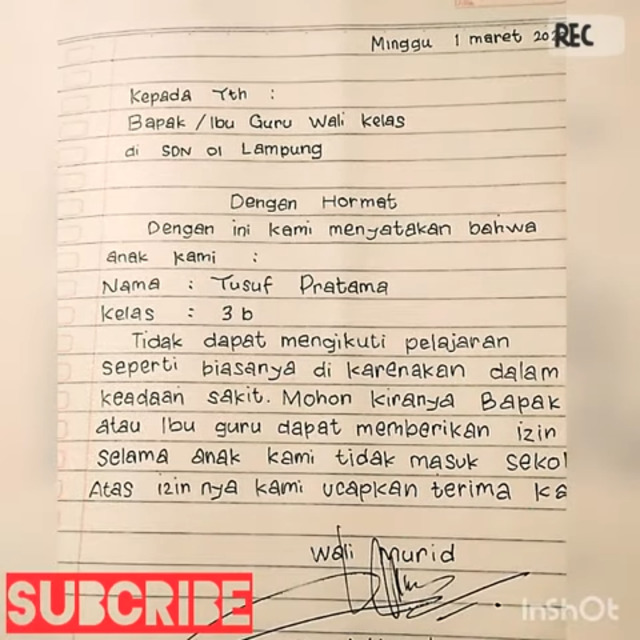 Minggu 1 maret 20
REC
Kepada Yth :
Bapak / Ibu Guru Wali Kelas
di SDN 01 Lampung
Dengan Hormat
Dengan ini kami menyatakan bahwa
anak kami :
Nama : Yusuf Pratama
Kelas : 3 b
Tidak dapat mengikuti pelajaran
seperti biasanya di karenakan dalam
keadaan sakit. Mohon kiranya Bapak
atau Ibu guru dapat memberikan izin
selama anak kami tidak masuk sekol
Atas izin nya kami ucapkan terima ka
Wali murid
SUBCRIBE
InShOt